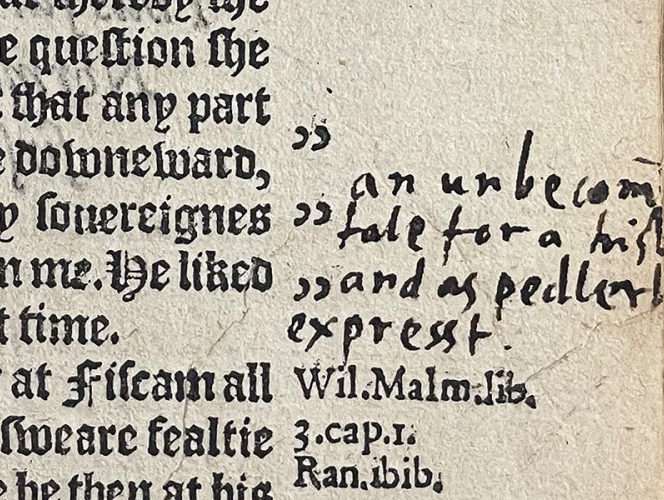 thereby the
e question she
that any part
e downeward,
y souereignes
n me. He liked
t time.
at Fiscam all
sweare fealtie
e he then at his
”
an unbecom̄
” tale for a hist
” and as pedlerl
expresst.
Wil.Malm.lib.
3.cap.1.
Ran.ibib.